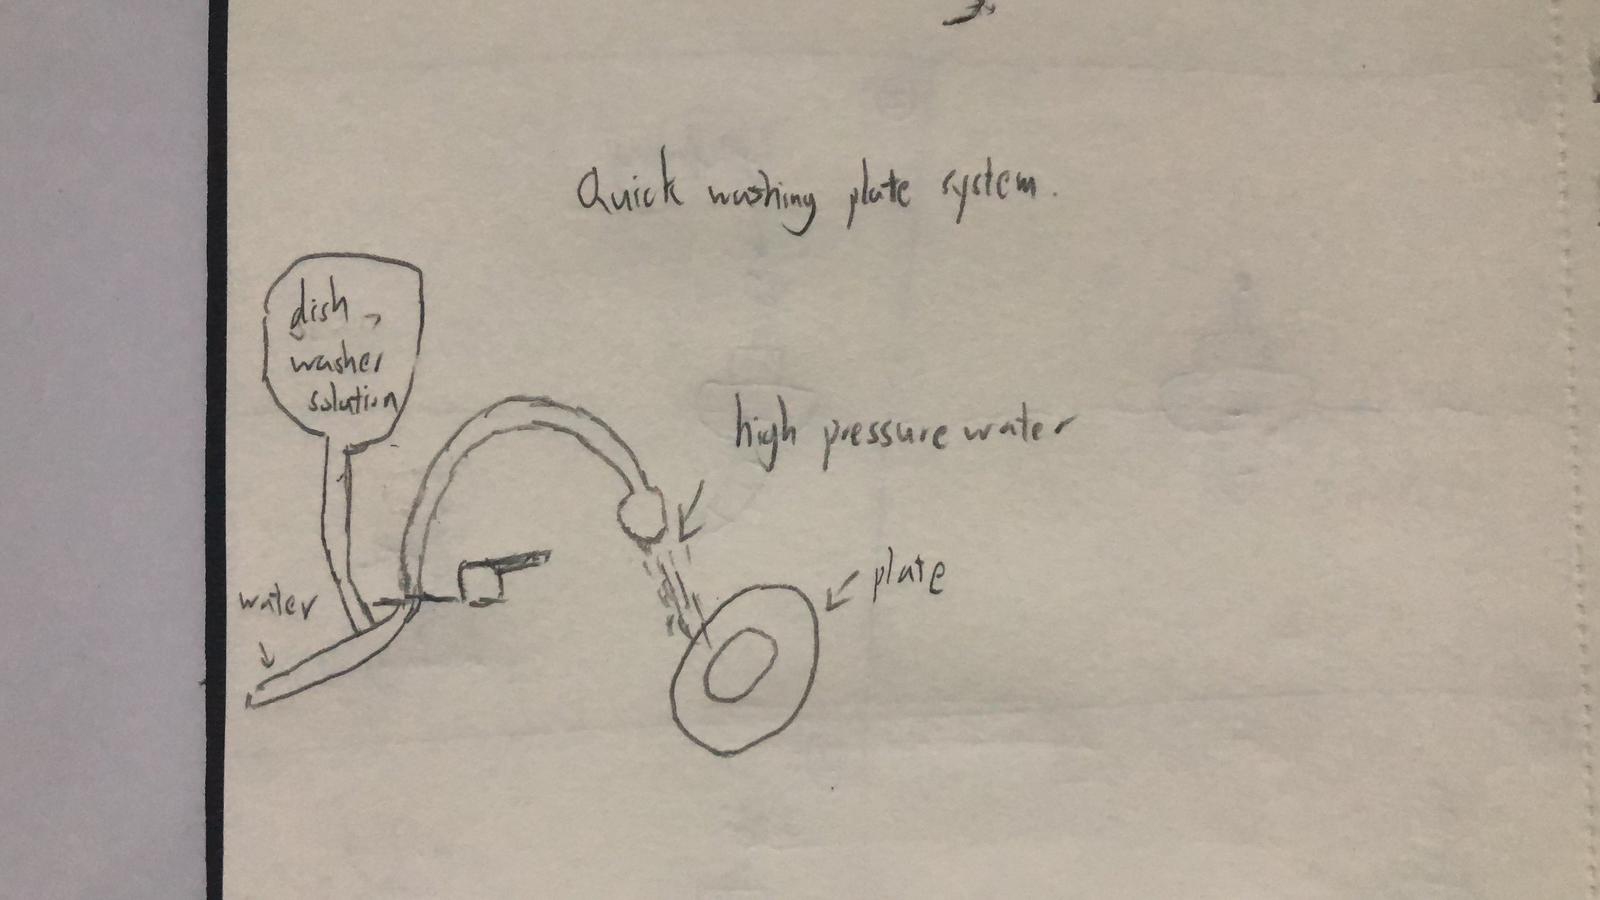 Quick washing plate system.
dish
washer
solution
high pressure water
plate
water